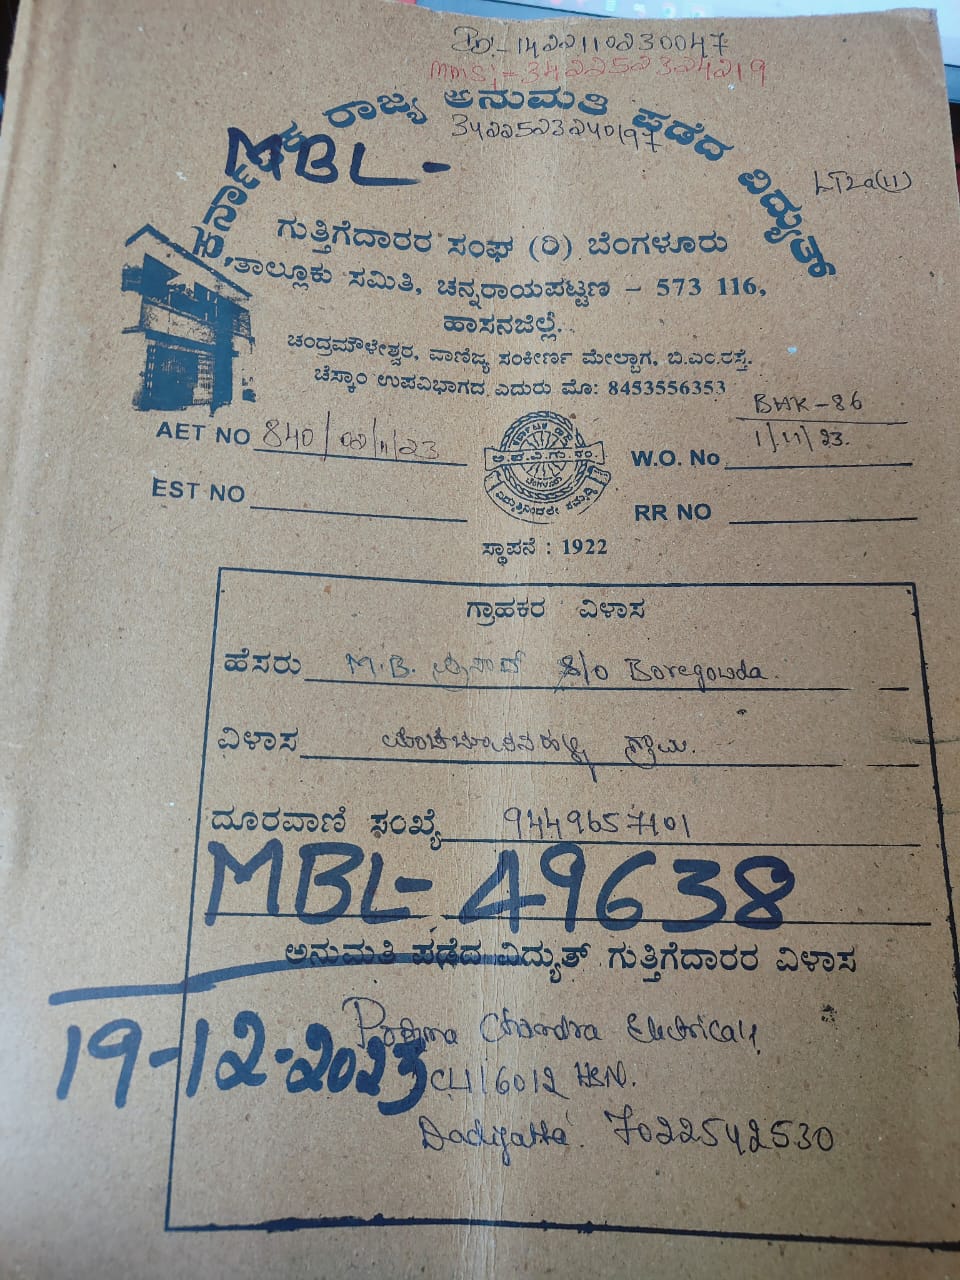 PDI- 14221102 30047
MMSI- 34225232 4219
34225232 40197
ಕರ್ನಾಟಕ ರಾಜ್ಯ ಅನುಮತಿ ಪಡೆದ ವಿದ್ಯುತ್
MBL-
LT2a(ii)
ಗುತ್ತಿಗೆದಾರರ ಸಂಘ (ರಿ) ಬೆಂಗಳೂರು
ತಾಲ್ಲೂಕು ಸಮಿತಿ, ಚನ್ನರಾಯಪಟ್ಟಣ – 573 116,
ಹಾಸನಜಿಲ್ಲೆ.
ಚಂದ್ರಮೌಳೇಶ್ವರ, ವಾಣಿಜ್ಯ ಸಂಕೀರ್ಣ ಮೇಲ್ಭಾಗ, ಬಿ.ಎಂ.ರಸ್ತೆ.
ಚೆಸ್ಕಾಂ ಉಪವಿಭಾಗದ ಎದುರು ಮೊ: 8453556353
AET NO 840/02/11/23
W.O. No BHK-86
1/11/23.
EST NO
RR NO
ಸ್ಥಾಪನೆ : 1922
ಗ್ರಾಹಕರ ವಿಳಾಸ
ಹೆಸರು M.B. ಪ್ರಸಾದ್ S/o Boregowda.
ವಿಳಾಸ ಗ್ರಾಮ.
ದೂರವಾಣಿ ಸಂಖ್ಯೆ 9449657101
MBL- 49638
ಅನುಮತಿ ಪಡೆದ ವಿದ್ಯುತ್ ಗುತ್ತಿಗೆದಾರರ ವಿಳಾಸ
Chandra Electricals,
19-12-2023
6012 HSN.
Dadigatta. 7022542530